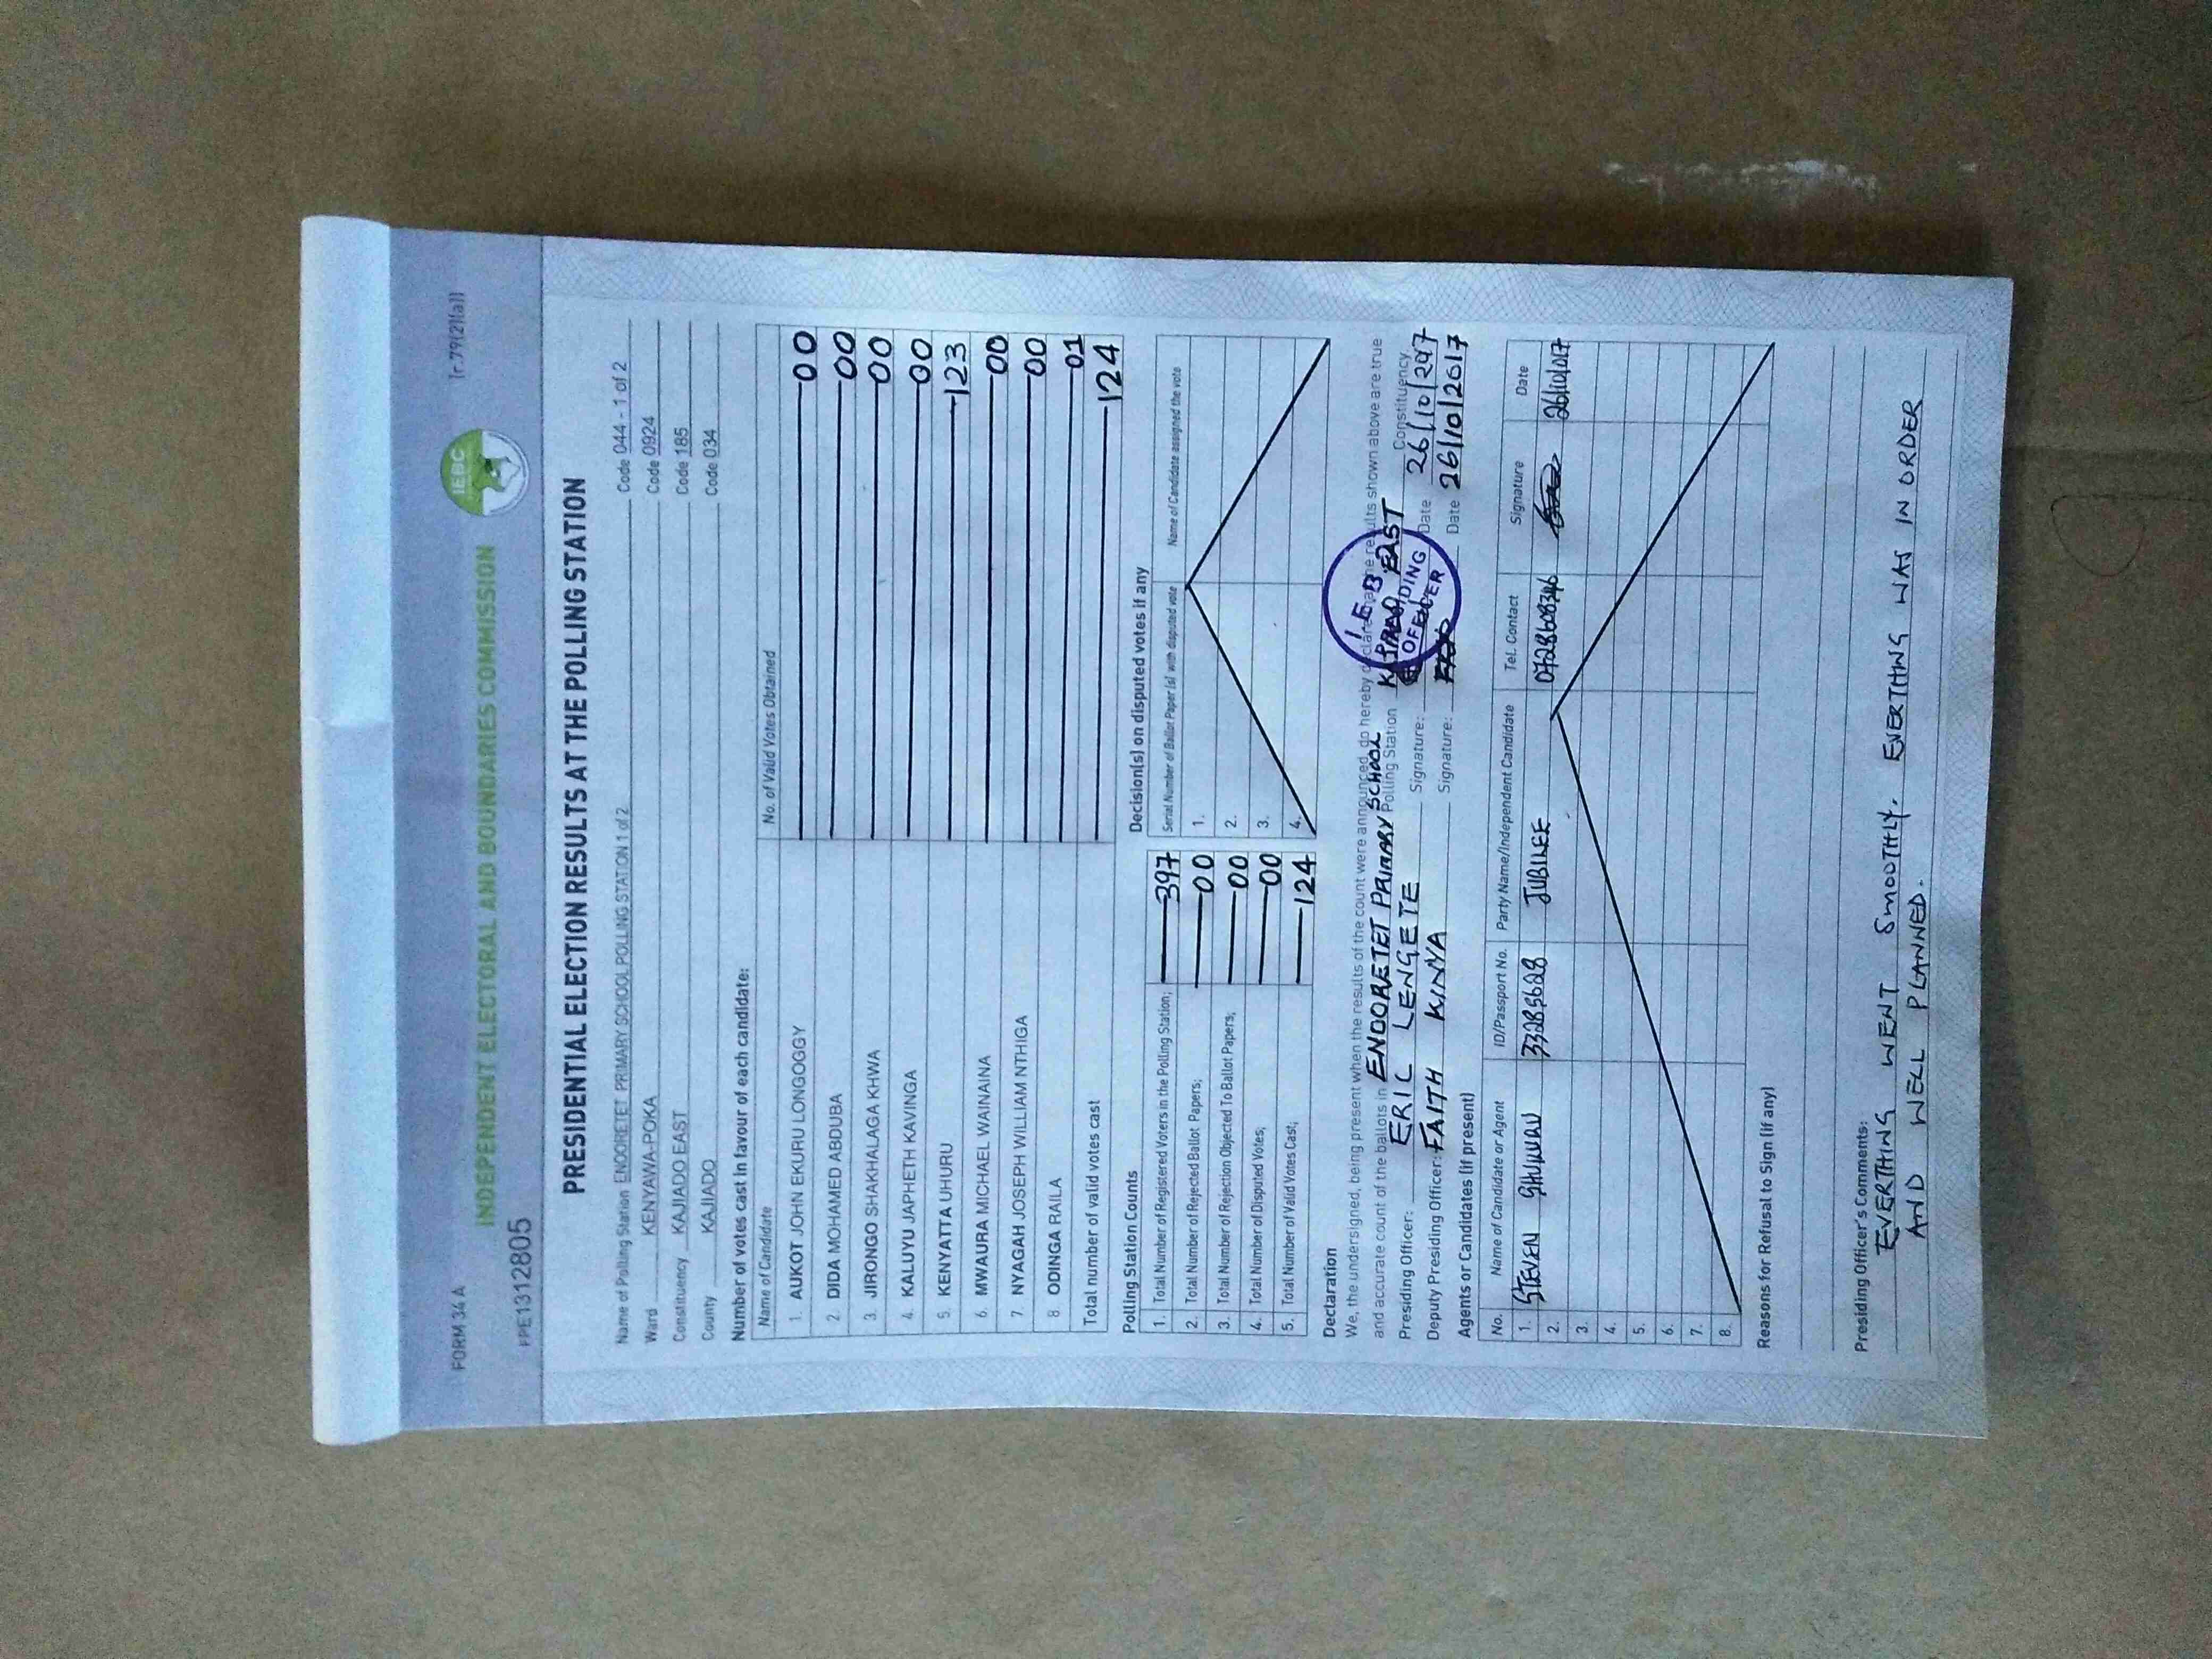 FORM 34 A
[r.79(2)(a)]
IEBC
INDEPENDENT ELECTORAL AND BOUNDARIES COMMISSION
FPE1312805
PRESIDENTIAL ELECTION RESULTS AT THE POLLING STATION
Name of Polling Station ENDORETET PRIMARY SCHOOL POLLING STATION 1 of 2 Code 044 - 1 of 2
Ward KENYAWA-POKA Code 0924
Constituency KAJIADO EAST Code 185
County KAJIADO Code 034
Number of votes cast in favour of each candidate:
Name of Candidate No. of Valid Votes Obtained
1. AUKOT JOHN EKURU LONGOGGY 00
2. DIDA MOHAMED ABDUBA 00
3. JIRONGO SHAKHALAGA KHWA 00
4. KALUYU JAPHETH KAVINGA 00
5. KENYATTA UHURU 123
6. MWAURA MICHAEL WAINAINA 00
7. NYAGAH JOSEPH WILLIAM NTHIGA 00
8 ODINGA RAILA 01
Total number of valid votes cast 124
Polling Station Counts
1. Total Number of Registered Voters in the Polling Station; 397
2. Total Number of Rejected Ballot Papers; 00
3. Total Number of Rejection Objected To Ballot Papers; 00
4. Total Number of Disputed Votes; 00
5. Total Number of Valid Votes Cast; 124
Decision(s) on disputed votes if any
Serial Number of Ballot Paper (s) with disputed vote Name of Candidate assigned the vote
1.
2.
3.
4.
Declaration
We, the undersigned, being present when the results of the count were announced, do hereby declare that the results shown above are true
and accurate count of the ballots in ENDORETET PRIMARY SCHOOL Polling Station KAJIADO EAST Constituency.
Presiding Officer: ERIC LENGETE Signature: Date 26/10/2017
Deputy Presiding Officer: FAITH KINYA Signature: Date 26/10/2017
I E B
PRESIDING
OFFICER
Agents or Candidates (if present)
No. Name of Candidate or Agent ID/Passport No. Party Name/Independent Candidate Tel. Contact Signature Date
1. STEVEN 33285628 JUBILEE 0728608346 26/10/017
2.
3.
4.
5.
6.
7.
8.
Reasons for Refusal to Sign (if any)
Presiding Officer's Comments:
EVERTHING WENT SMOOTHLY. EVERTHING WAS IN ORDER
AND WELL PLANNED.